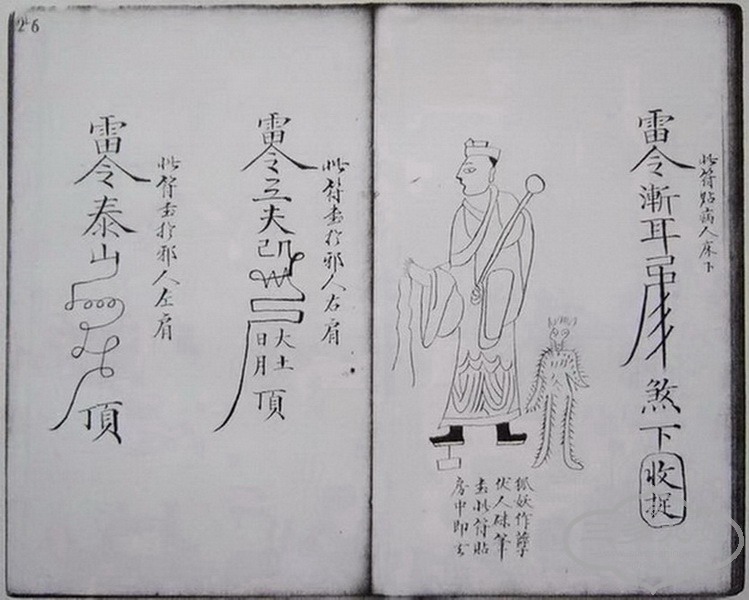 26
此符貼病人床下
雷令漸耳
煞下收捉
狐妖作孽
伏人硃筆
書此符貼
房中即去
此符書於邪人右肩
雷令
夫
大土
日月
頂
此符書於邪人左肩
雷令泰山
頂